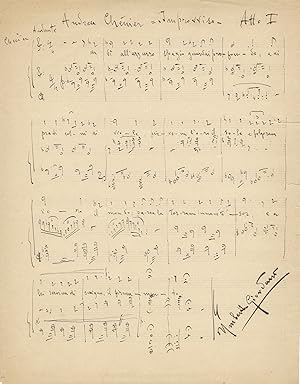 Andrea Chénier = Improvviso = Atto I
Chénier Andante
Un dì all'azzurro spazio guardai profondo, e ai
prati colmi di viole, pioveva l'oro il sole e folgorava
d'oro il mondo parea la terra un immane tesor e a
lei serviva di scrigno, il firmamento.
Umberto Giordano